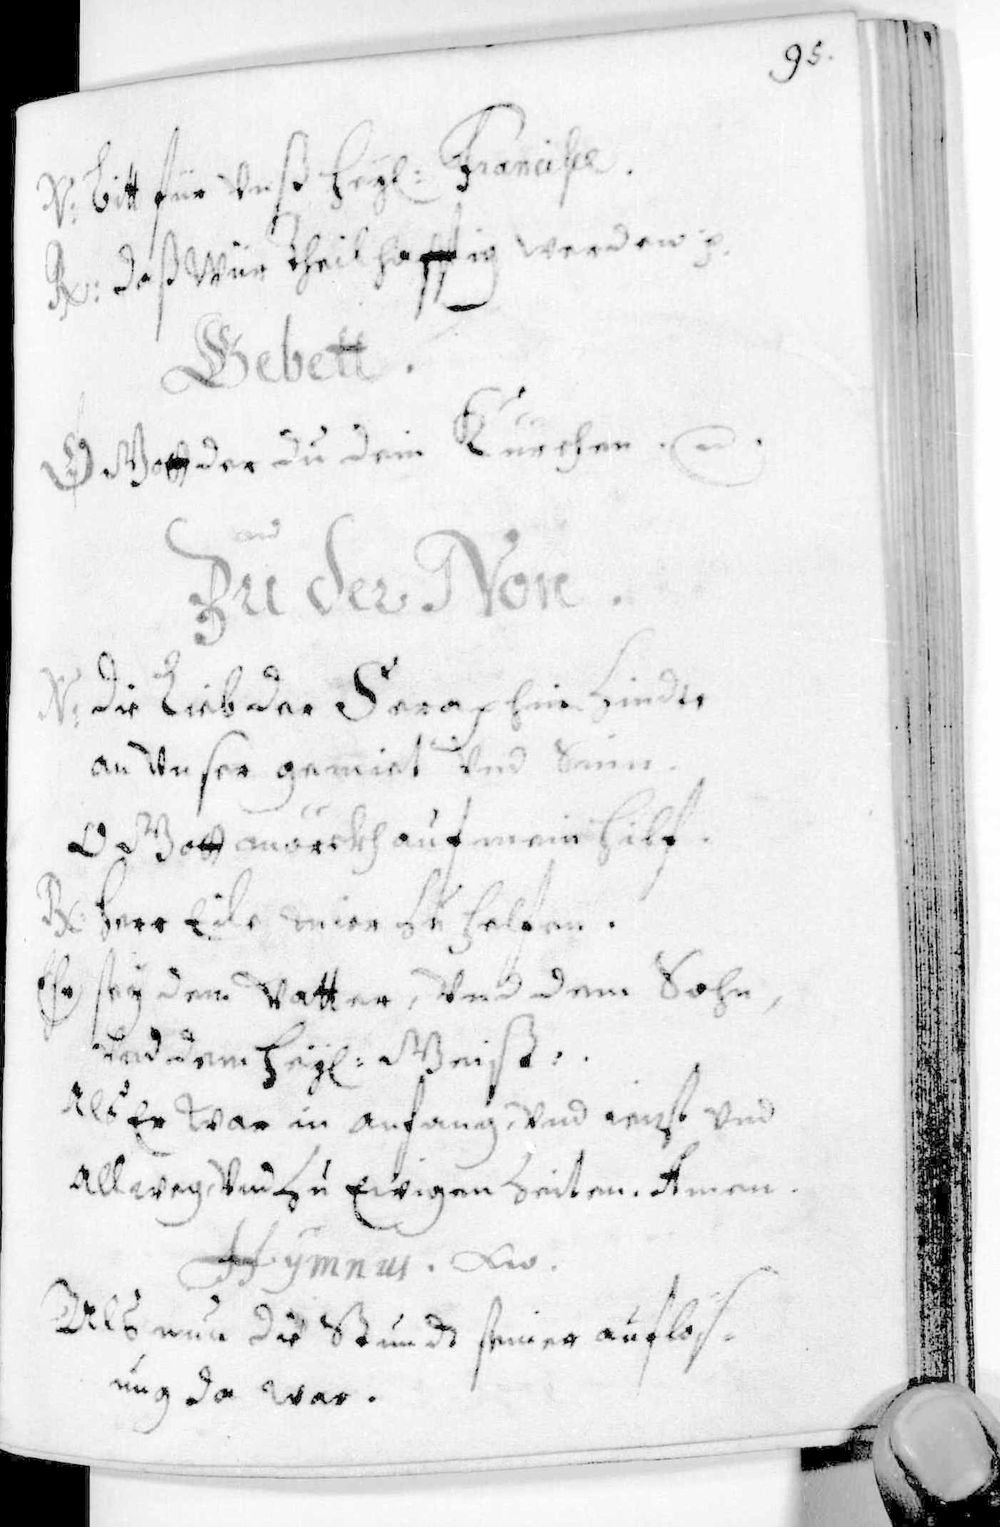 95.
V: bitt für vnß heÿl: Francisce.
R: daß Wür theilhafftig werden p.
Gebett.
O Gott der du dein Kürchen.
Zu der Non.
V: die Lieb der Seraphin zindte
an vnser gemiet vnd Sinn.
O Gott mörckh auf mein hilf.
R: herr Eile mier zu helfen.
Ehr seÿ dem Vatter, vnd dem Sohn,
vnd dem heÿl: Geist.
Als Er war in anfang, vnd iezt vnd
alleweg, vnd zu Ewigen zeiten. Amen.
Hÿmnus.
Als nun die Stundt seiner auflös-
ung da war.